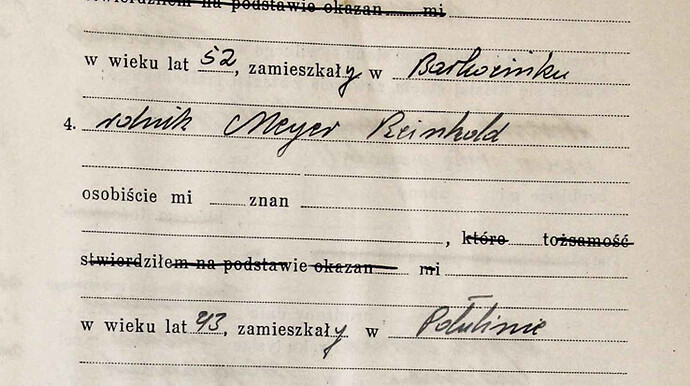 stwierdziłem na podstawie okazan mi
w wieku lat 52, zamieszkały w
4. rolnik Meyer Reinhold
osobiście mi znan
, które tożsamość
stwierdziłem na podstawie okazan mi
w wieku lat 43, zamieszkały w Potulinie